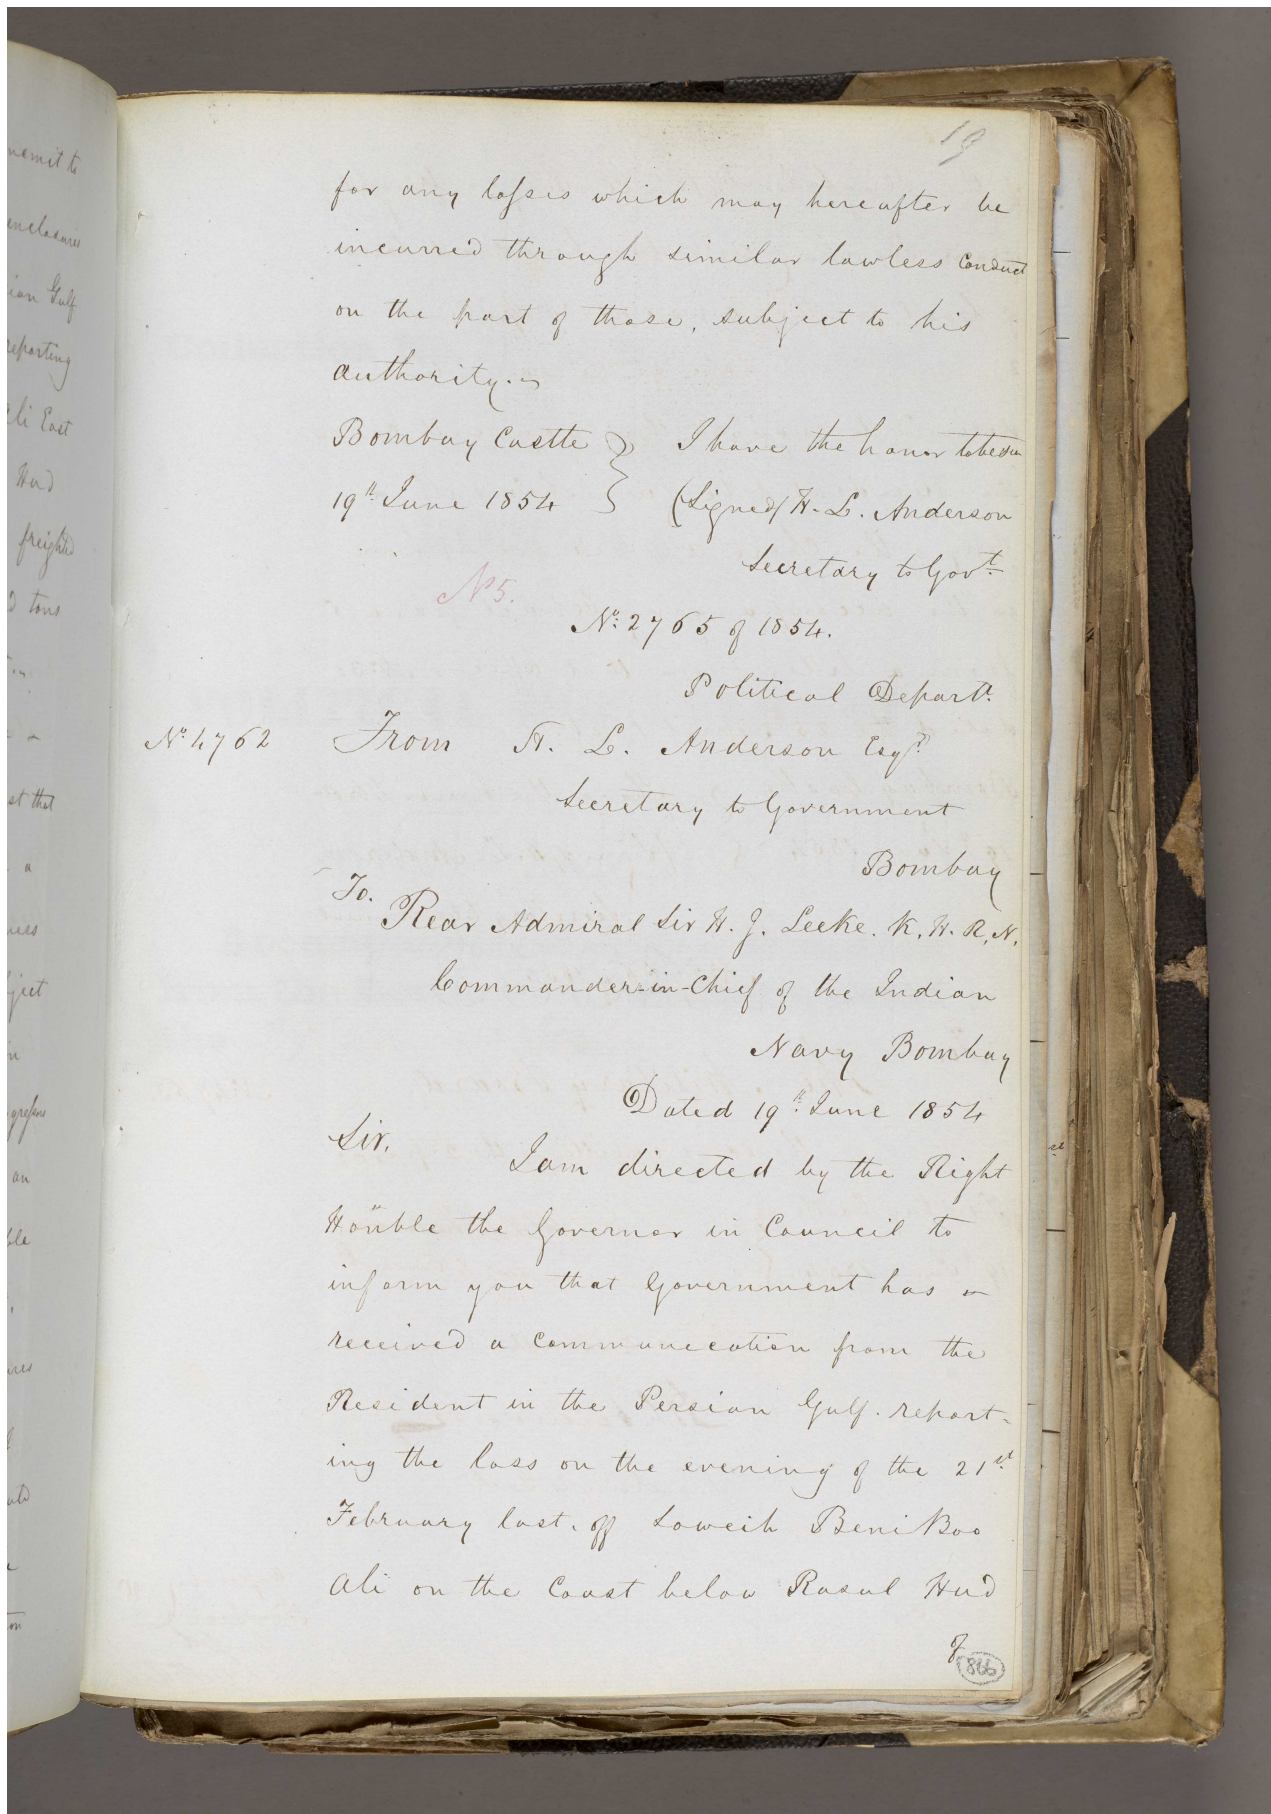 19
for any losses which may hereafter be
incurred through similar lawless Conduct
on the part of those, subject to his
authority.
Bombay Castle } I have the honor to be &ca
19th June 1854 (Signed/ H. L. Anderson
Secretary to Govt
No 5.
No. 2765 of 1854.
Political Departt.
No. 4762 From H. L. Anderson Esqr.
Secretary to Government
Bombay
To.
Rear Admiral Sir H. J. Leeke. K. H. R. N.
Commander-in-Chief of the Indian
Navy Bombay
Dated 19th June 1854
Sir,
I am directed by the Right
Honble the Governor in Council to
inform you that Government has
received a Communecation from the
Resident in the Persian Gulf. report-
ing the loss on the evening of the 21st
February last. off Soweih Beni Boo
Ali on the Coast below Rasul Hud
of
866
nemit to
enclosures
ian Gulf
reporting
li East
Hud
freighted
tons
st that
a
ject
in
an
ble